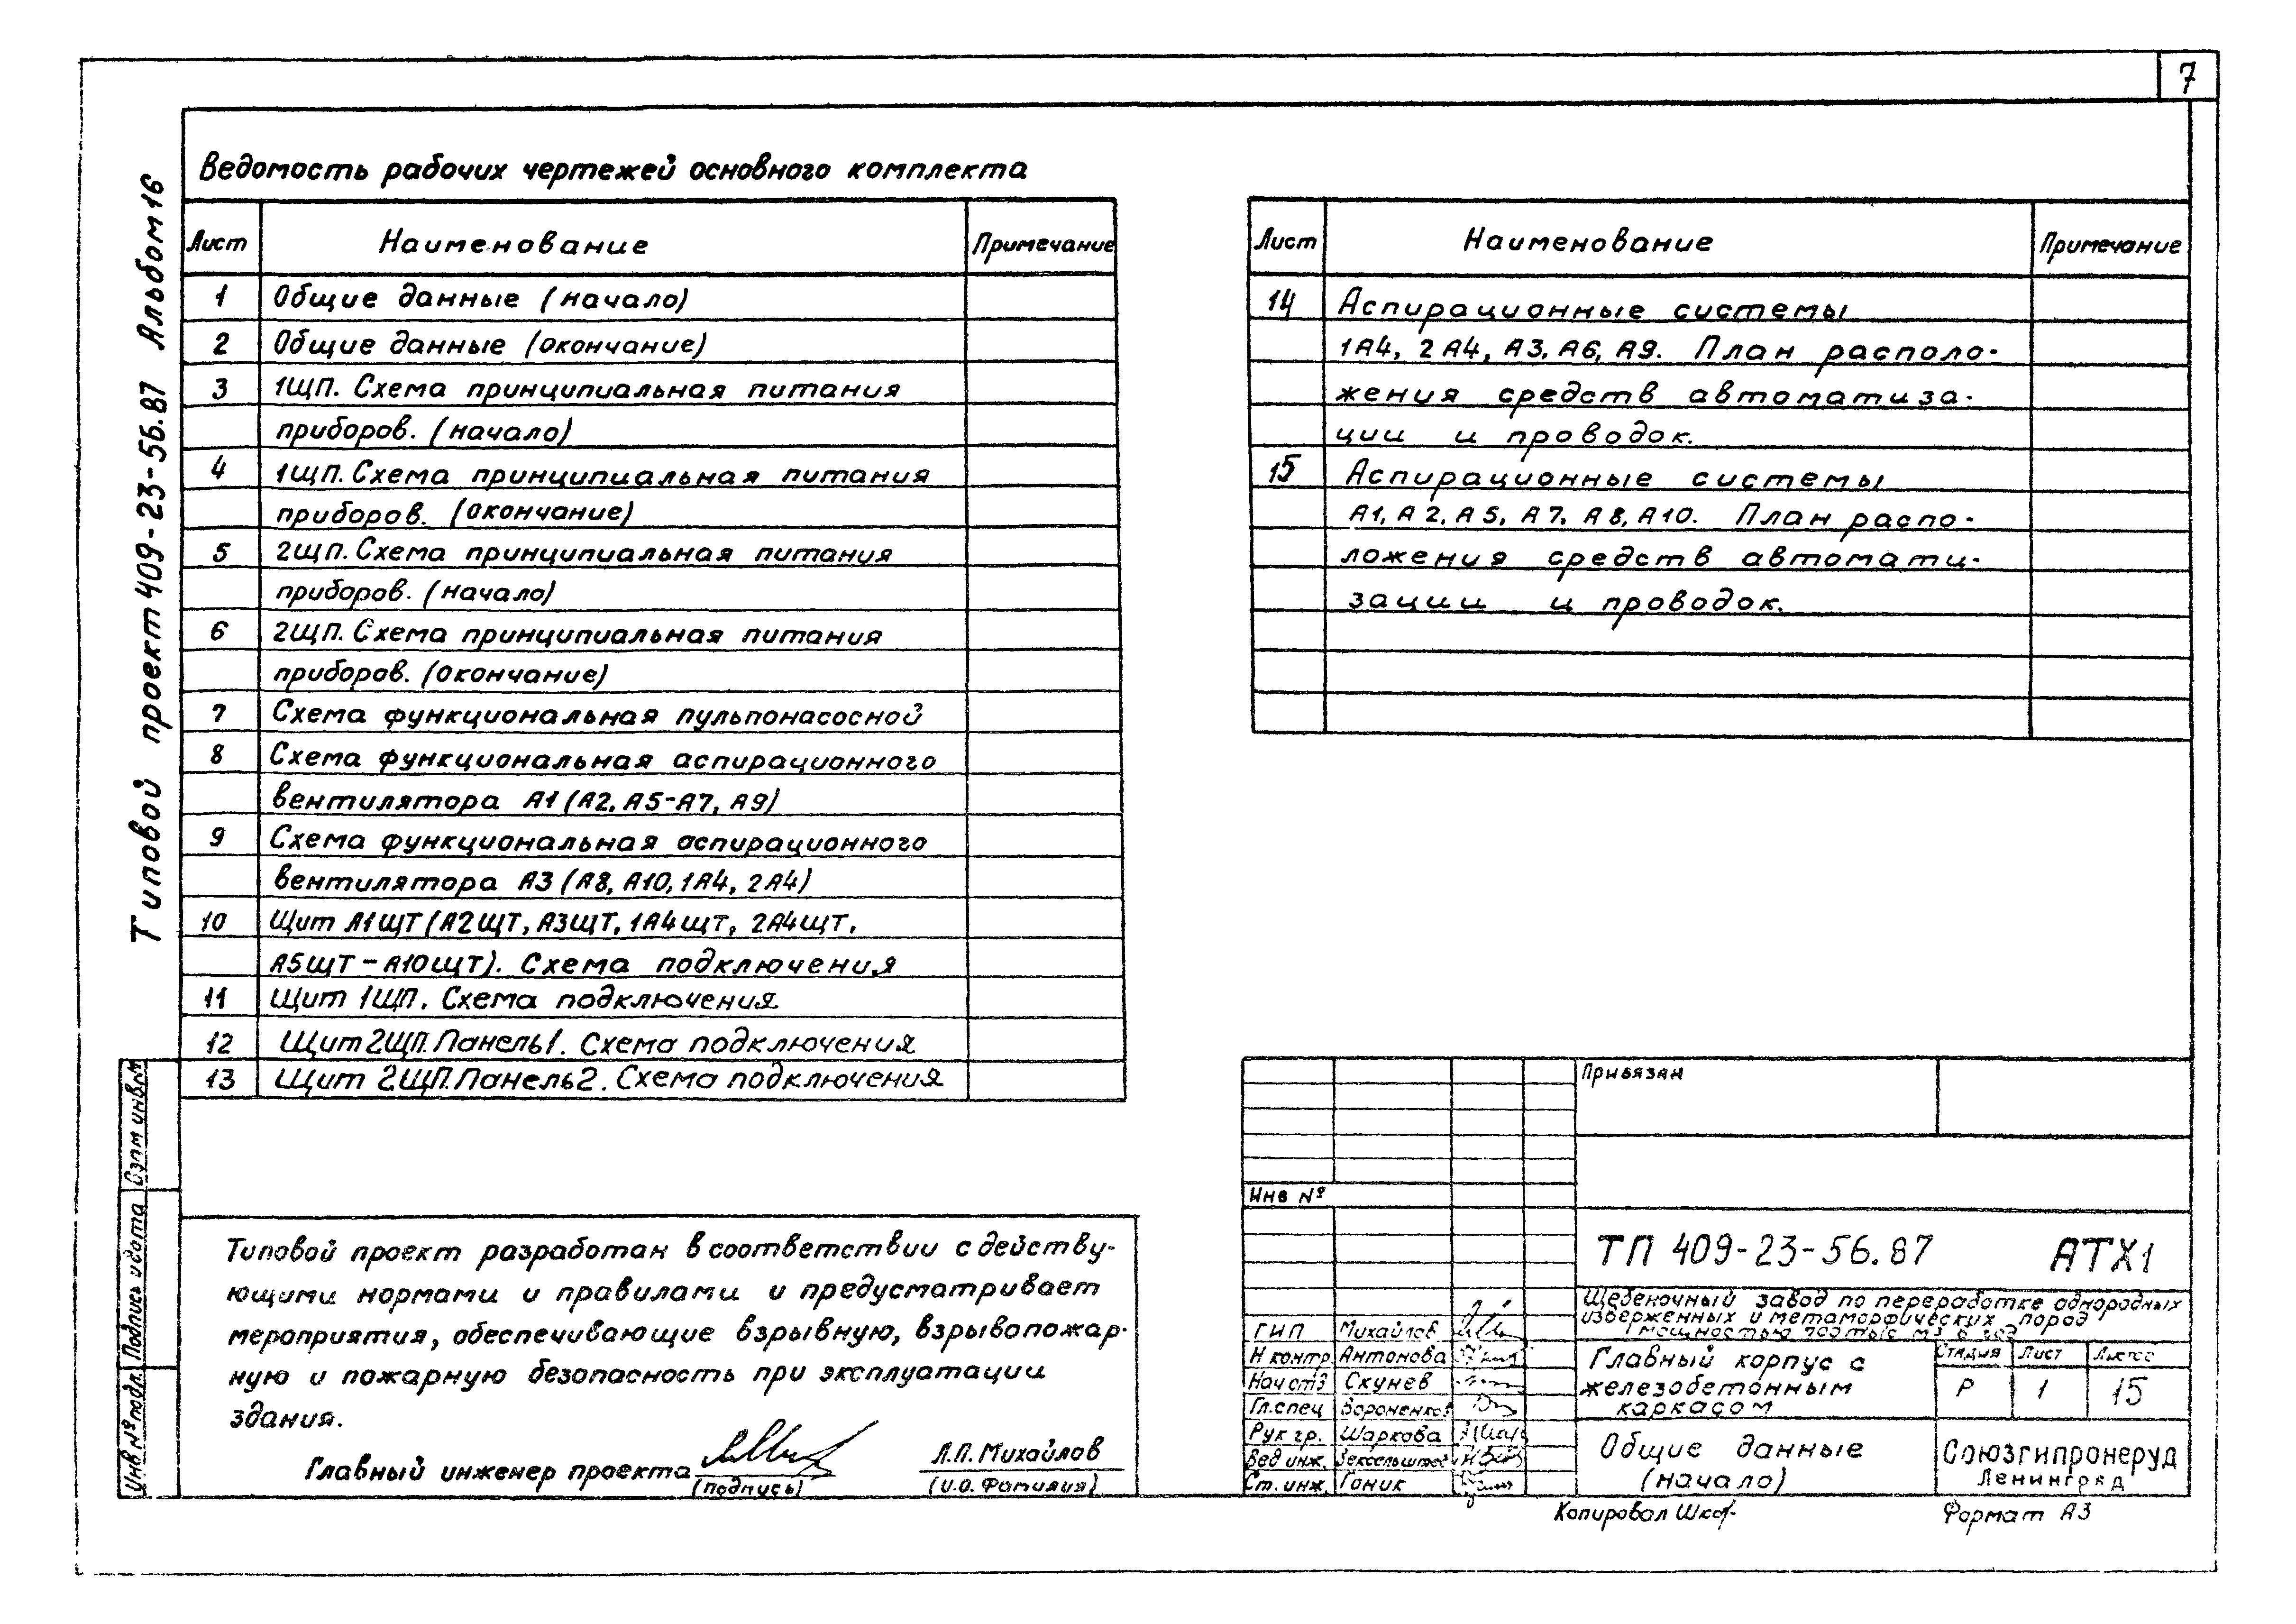 7
Типовой проект 409-23-56.87 Альбом 16
Ведомость рабочих чертежей основного комплекта
Лист Наименование Примечание
1 Общие данные (начало)
2 Общие данные (окончание)
3 1ЩП. Схема принципиальная питания
приборов. (начало)
4 1ЩП. Схема принципиальная питания
приборов. (окончание)
5 2ЩП. Схема принципиальная питания
приборов. (начало)
6 2ЩП. Схема принципиальная питания
приборов. (окончание)
7 Схема функциональная пульпонасосной
8 Схема функциональная аспирационного
вентилятора А1 (А2, А5-А7, А9)
9 Схема функциональная аспирационного
вентилятора А3 (А8, А10, 1А4, 2А4)
10 Щит А1ЩТ (А2ЩТ, А3ЩТ, 1А4ЩТ, 2А4ЩТ,
А5ЩТ-А10ЩТ). Схема подключения
11 Щит 1ЩП. Схема подключения
12 Щит 2ЩП. Панель 1. Схема подключения
13 Щит 2ЩП. Панель 2. Схема подключения
Лист Наименование Примечание
14 Аспирационные системы
1А4, 2А4, А3, А6, А9. План располо-
жения средств автоматиза-
ции и проводок.
15 Аспирационные системы
А1, А2, А5, А7, А8, А10. План распо-
ложения средств автомати-
зации и проводок.
Типовой проект разработан в соответствии с действу-
ющими нормами и правилами и предусматривает
мероприятия, обеспечивающие взрывную, взрывопожар-
ную и пожарную безопасность при эксплуатации
здания.
Главный инженер проекта Л.П. Михайлов
(подпись) (И.О. Фамилия)
Инв № подл. Подпись и дата Взам инв. №
Привязан
Инв №
ТП 409-23-56.87 АТХ1
Щебеночный завод по переработке однородных
изверженных и метаморфических пород
мощностью тыс м3 в год
ГИП Михайлов
Н контр Антонова
Нач отд Скунев
Гл. спец Вороненко
Рук гр. Шаркова
Вед инж.
Ст. инж. Гоник
Главный корпус с
железобетонным
каркасом
Стадия Лист Листов
Р 1 15
Общие данные
(начало)
Союзгипронеруд
Ленинград
Копировал Формат А3